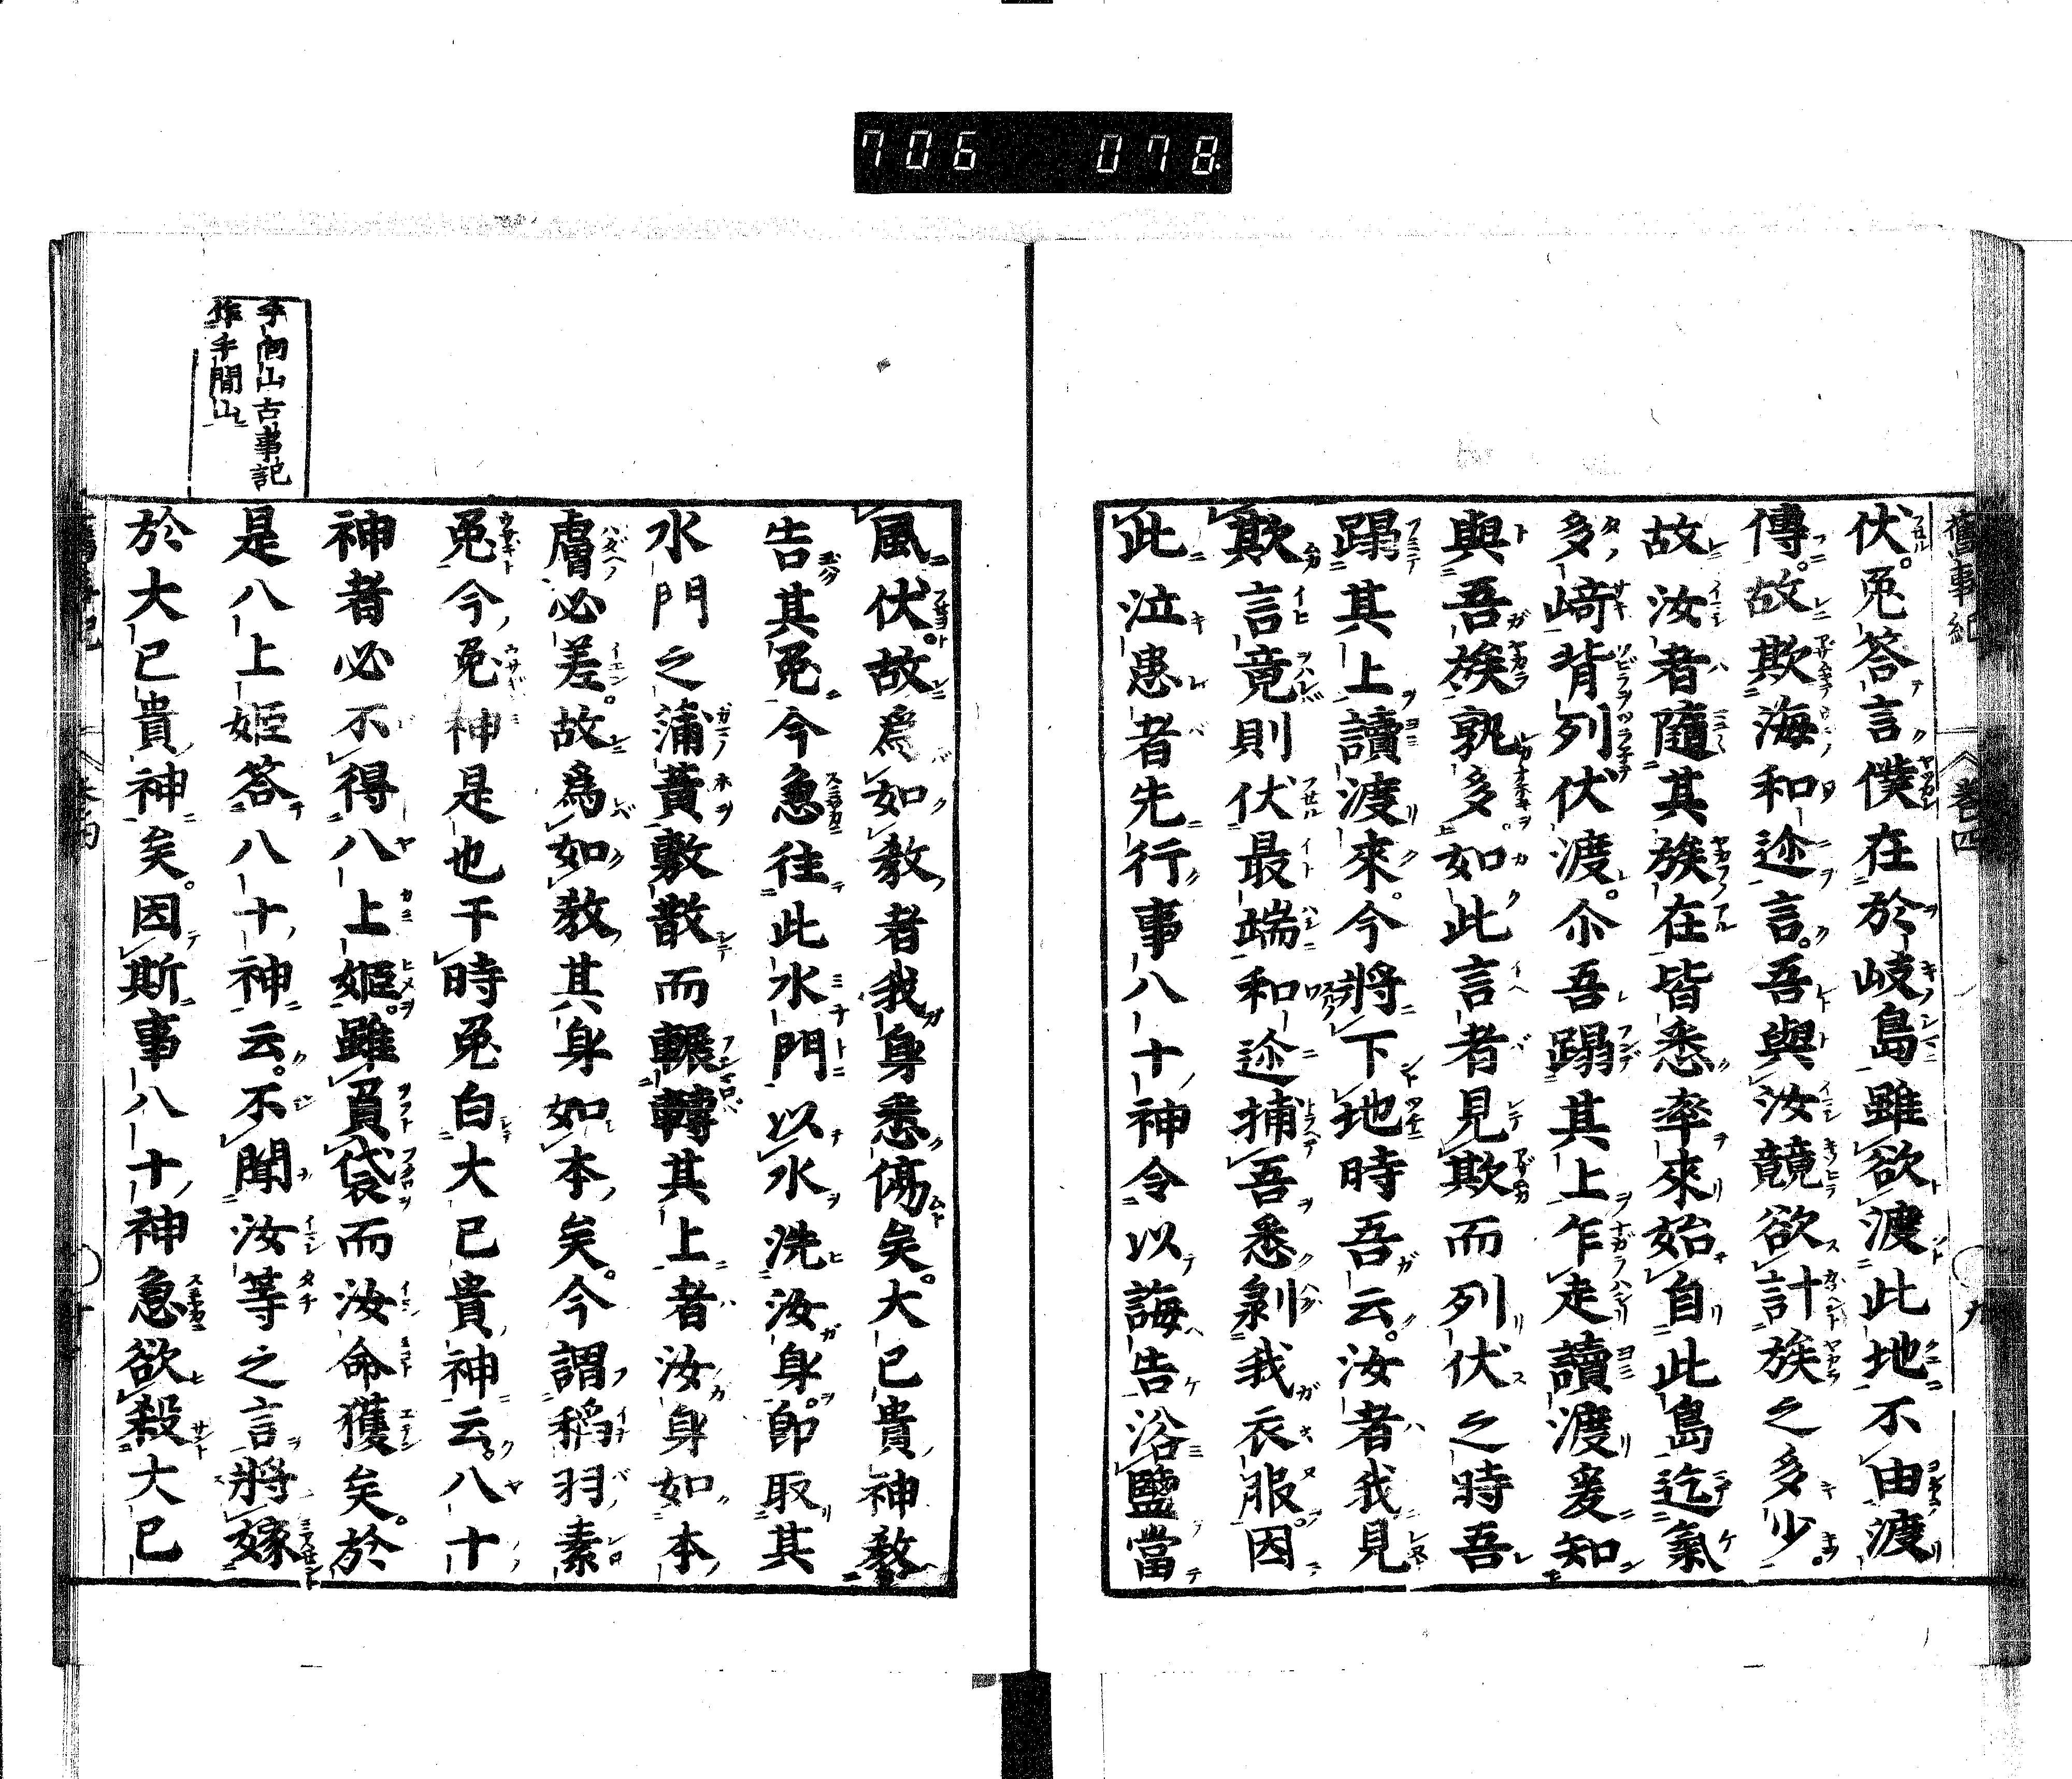 706 078
舊事紀 巻四 九
伏。兎答言僕在於岐島雖欲渡此地不由渡
傳。故欺海和迩言。吾與汝競欲計族之多少。
故汝者隨其族在皆悉率來始自此島迄氣
多﨑背列伏渡。尒吾蹋其上乍走讀渡爰知
與吾族孰多。如此言者見欺而列伏之時吾
蹋其上讀渡來。今將下地時吾云。汝者我見
欺言竟則伏最端和迩捕吾悉剥我衣服。因
此泣患者先行事八十神令以誨告浴鹽當
風伏。故爲如教者我身悉傷矣。大已貴神教
告其兎今急往此水門以水洗汝身。即取其
水門之蒲黄敷散而輾轉其上者汝身如本
膚必差。故爲如教其身如本矣。今謂稻羽素
兎今兎神是也于時兎白大已貴神云。八十
神者必不得八上姫。雖負袋而汝命獲矣。於
是八上姫答八十神云。不聞汝等之言將嫁
於大已貴神矣。因斯事八十神急欲殺大已
手向山古事記
作手間山